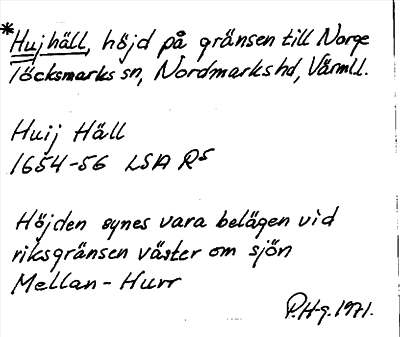 *Hujhäll, höjd på gränsen till Norge
Töcksmarks sn, Nordmarks hd, Värmll.
Huij Häll
1654-56 LSA R5
Höjden synes vara belägen vid
riksgränsen väster om sjön
Mellan-Hurr
P.H-g. 1971.